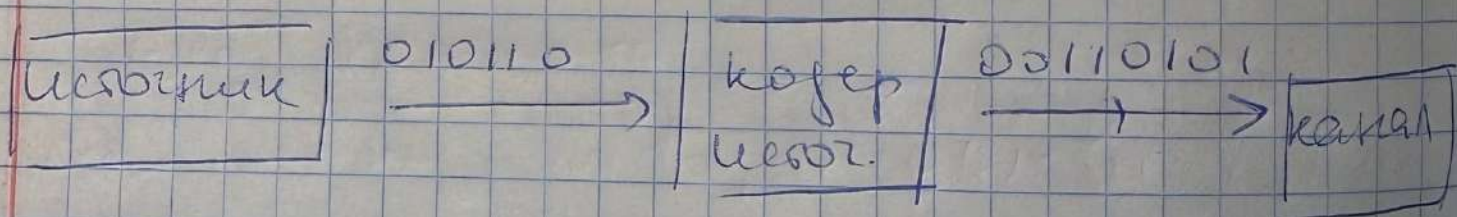 источник
010110
кодер
источ.
00110101
канал